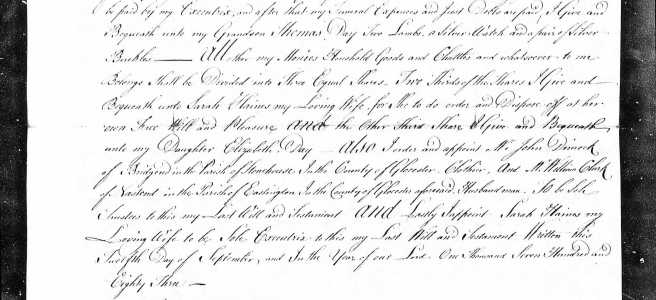 be paid by my Executrix, and after that my Funeral Expences and Just Debts are paid, I Give and
Bequeath unto my Grandson Thomas Day Two Lambs a Silver Watch and a pair of Silver
Buckles — All the my Monies Houshold Goods and Chattles and whatsoever to me
Belongs Shall be Divided into Three Equal Shares. Two Thirds of the Shares I Give and
Bequeath unto Sarah Haines my Loving Wife, for She to do order and Dispose off at her
own Free Will and Pleasure And the Other Third Share I Give and Bequeath
unto my Daughter Elizabeth Day — Also I order and appoint Mr. John Dimock
of Bridgend in the Parish of Stonehouse In the County of Glocester Clothier, And Mr. William Clark
of Nastend in the Parish of Eastington In the County of Glocester aforesaid Husbandman. To be Sole
Trustees to this my Last Will and Testament And Lastly I appoint Sarah Haines my
Loving Wife to be Sole Executrix to this my Last Will and Testament Written this
Twelfth Day of September, and In the Year of our Lord One Thousand Seven Hundred and
Eighty Three —